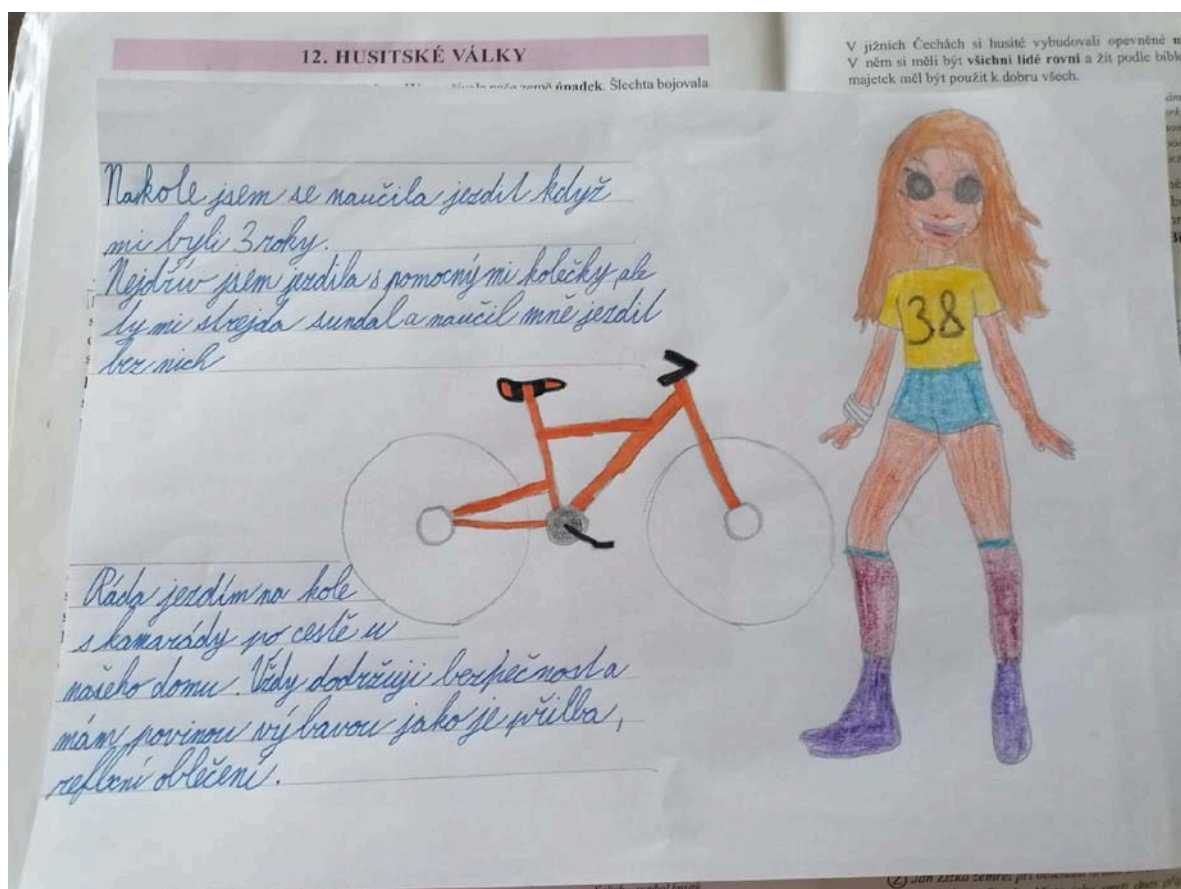 12. HUSITSKÉ VÁLKY
úpadek. Šlechta bojovala
V jižních Čechách si husité vybudovali opevněné
V něm si měli být všichni lidé rovni a žít podle
majetek měl být použit k dobru všech.
Na kole jsem se naučila jezdit když
mi byli 3 roky.
Nejdřív jsem jezdila s pomocný mi kolečky, ale
ty mi strejda sundal a naučil mně jezdit
bez nich
38
Ráda jezdím na kole
s kamarády po cestě u
našeho domu. Vždy dodržuji bezpečnost a
mám povinou výbavou jako je přilba,
reflxní oblečení.